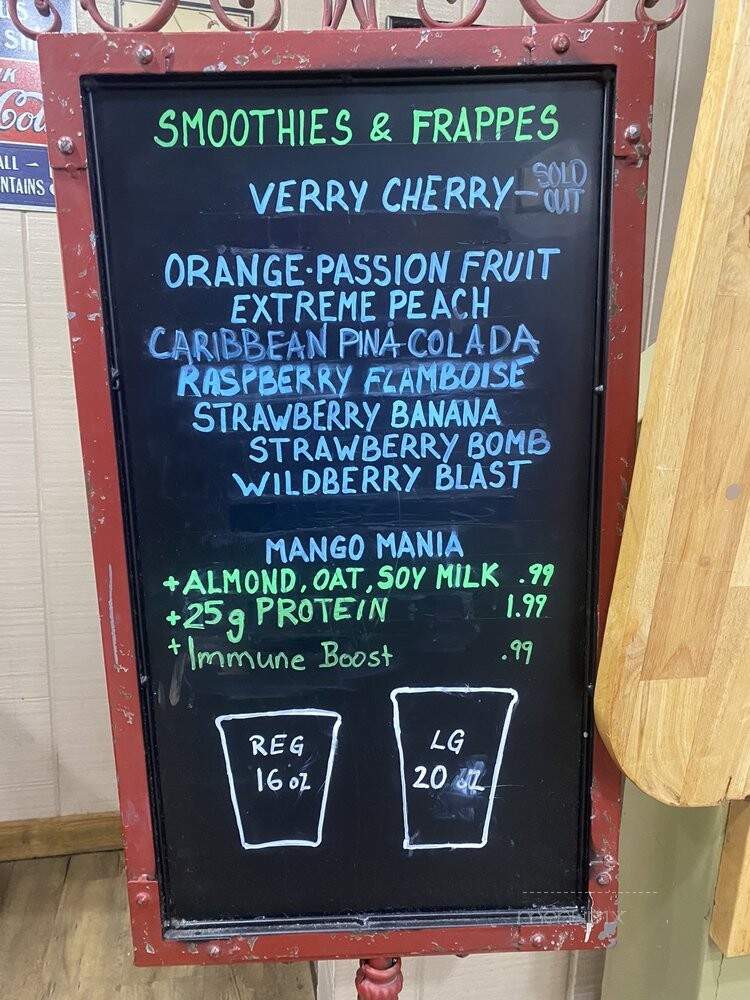 SMOOTHIES & FRAPPES
VERRY CHERRY - SOLD OUT
ORANGE·PASSION FRUIT
EXTREME PEACH
CARIBBEAN PINA COLADA
RASPBERRY FLAMBOISE
STRAWBERRY BANANA
STRAWBERRY BOMB
WILDBERRY BLAST
MANGO MANIA
+ALMOND, OAT, SOY MILK .99
+25g PROTEIN 1.99
+Immune Boost .99
REG
16 oz
LG
20 oz